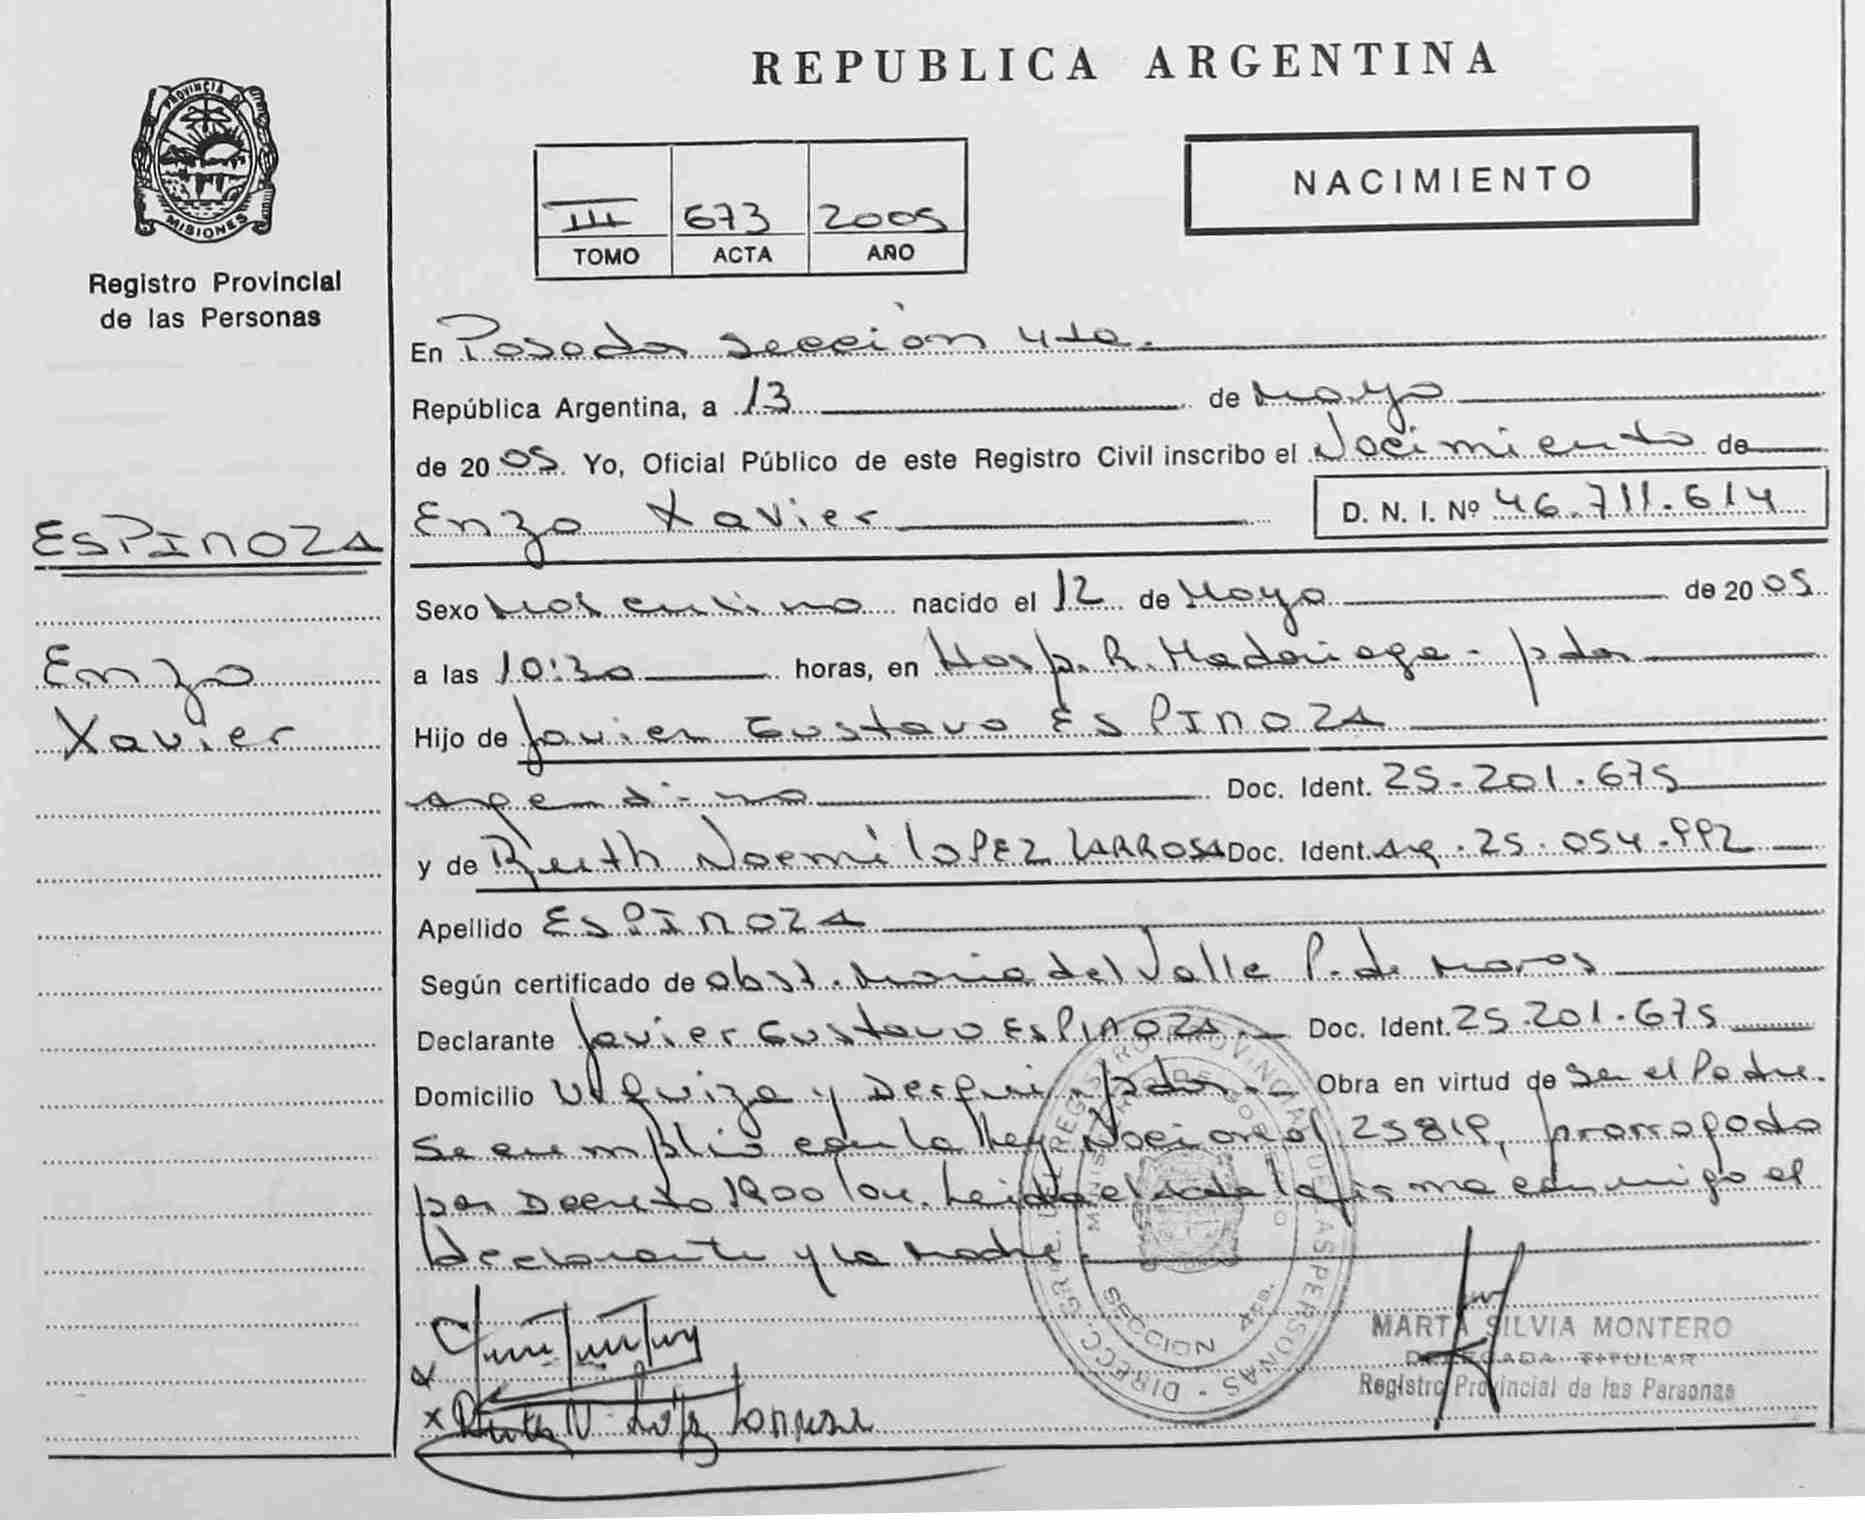 REPUBLICA ARGENTINA
PROVINCIA DE
MISIONES
Registro Provincial
de las Personas
III 673 2005
TOMO ACTA AÑO
NACIMIENTO
En Posadas sección 4ta.
República Argentina, a 13 de Mayo
de 2005 Yo, Oficial Público de este Registro Civil inscribo el Nacimiento de
Enzo Xavier D. N. I. Nº 46.711.614
ESPINOZA
Enzo
Xavier
Sexo Masculino nacido el 12 de Mayo de 2005
a las 10:30 horas, en Hosp. R. Madariaga - pdas
Hijo de Javier Gustavo ESPINOZA
argentino Doc. Ident. 25.201.675
y de Ruth Noemi LOPEZ LARROSA Doc. Ident. arg. 25.054.992
Apellido ESPINOZA
Según certificado de obst. Maria del Valle P. de Maros
Declarante Javier Gustavo ESPINOZA Doc. Ident. 25.201.675
Domicilio Urquiza y Derqui - pdas. Obra en virtud de ser el Padre.
Se cumplió con la Ley Nacional 25819, prorrogada
por Decreto 1900/04. Leida el acta la firma conmigo el
declarante y la Madre.
DIRECC. GRAL. REGISTRO PROVINCIAL DE LAS PERSONAS
MINISTERIO DE GOBIERNO
SECCION 4ta.
MARTA SILVIA MONTERO
DELEGADA TITULAR
Registro Provincial de las Personas
x
x Ruth N. López Larrosa